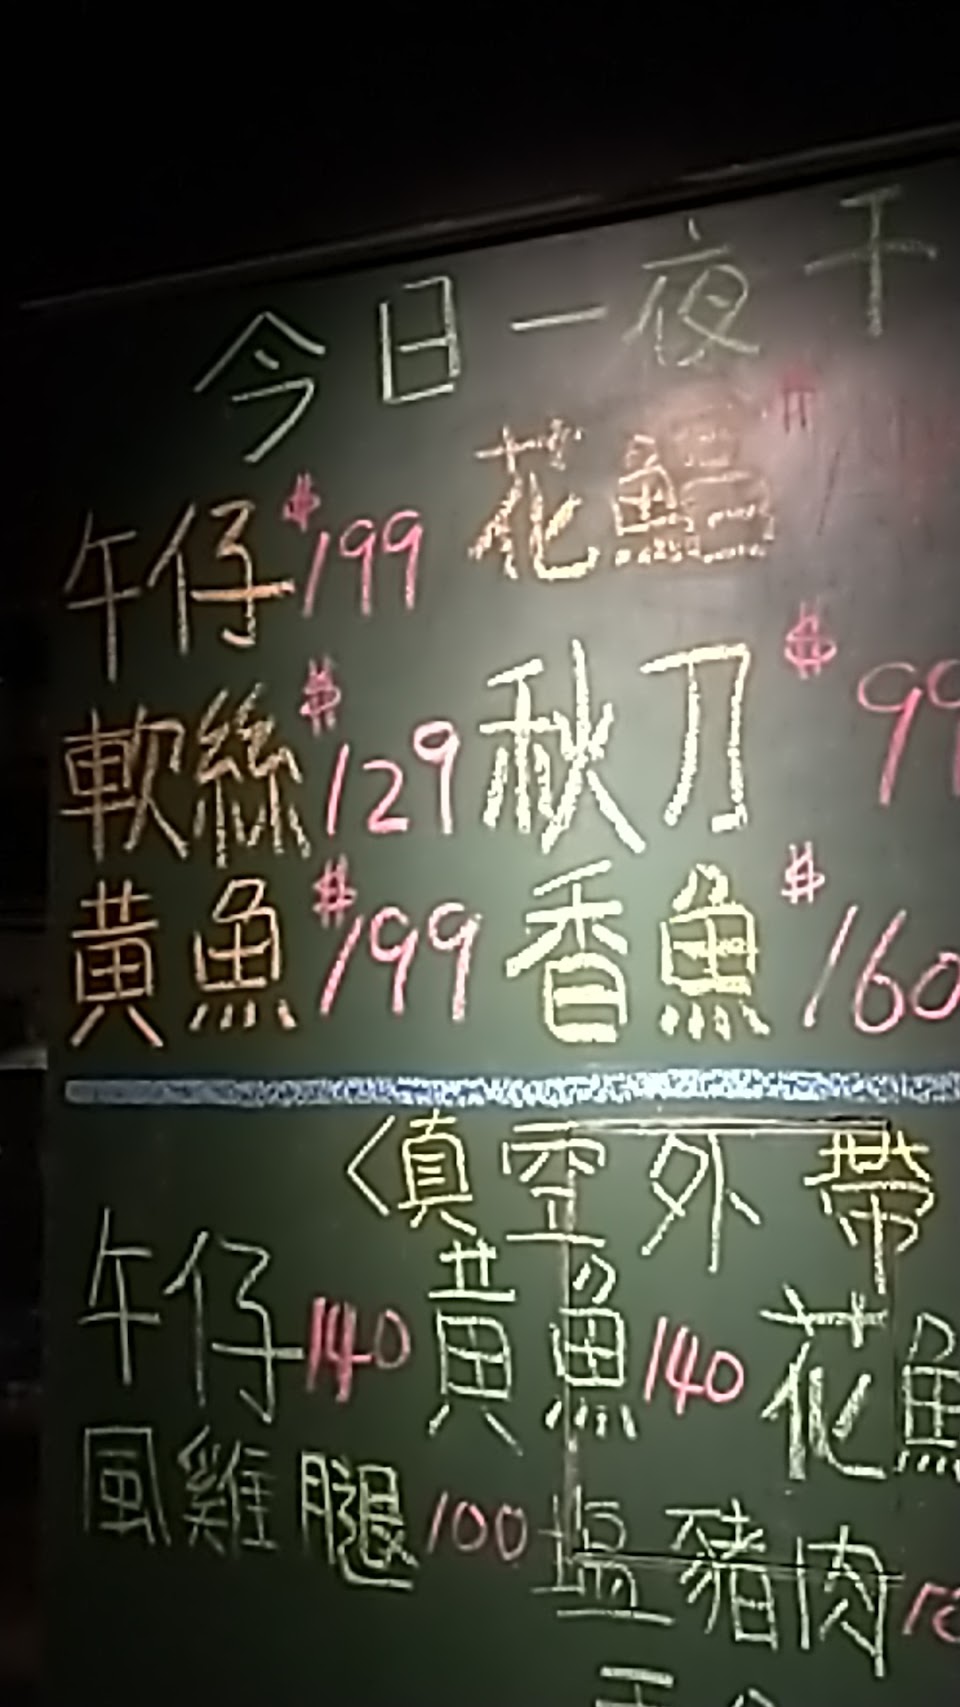 今日一夜干
午仔 $199 花鰮 $
軟絲 $129 秋刀 $99
黃魚 $199 香魚 $160
〈真空外帶
午仔140 黃魚140 花魚
風雞腿100 塩豬肉